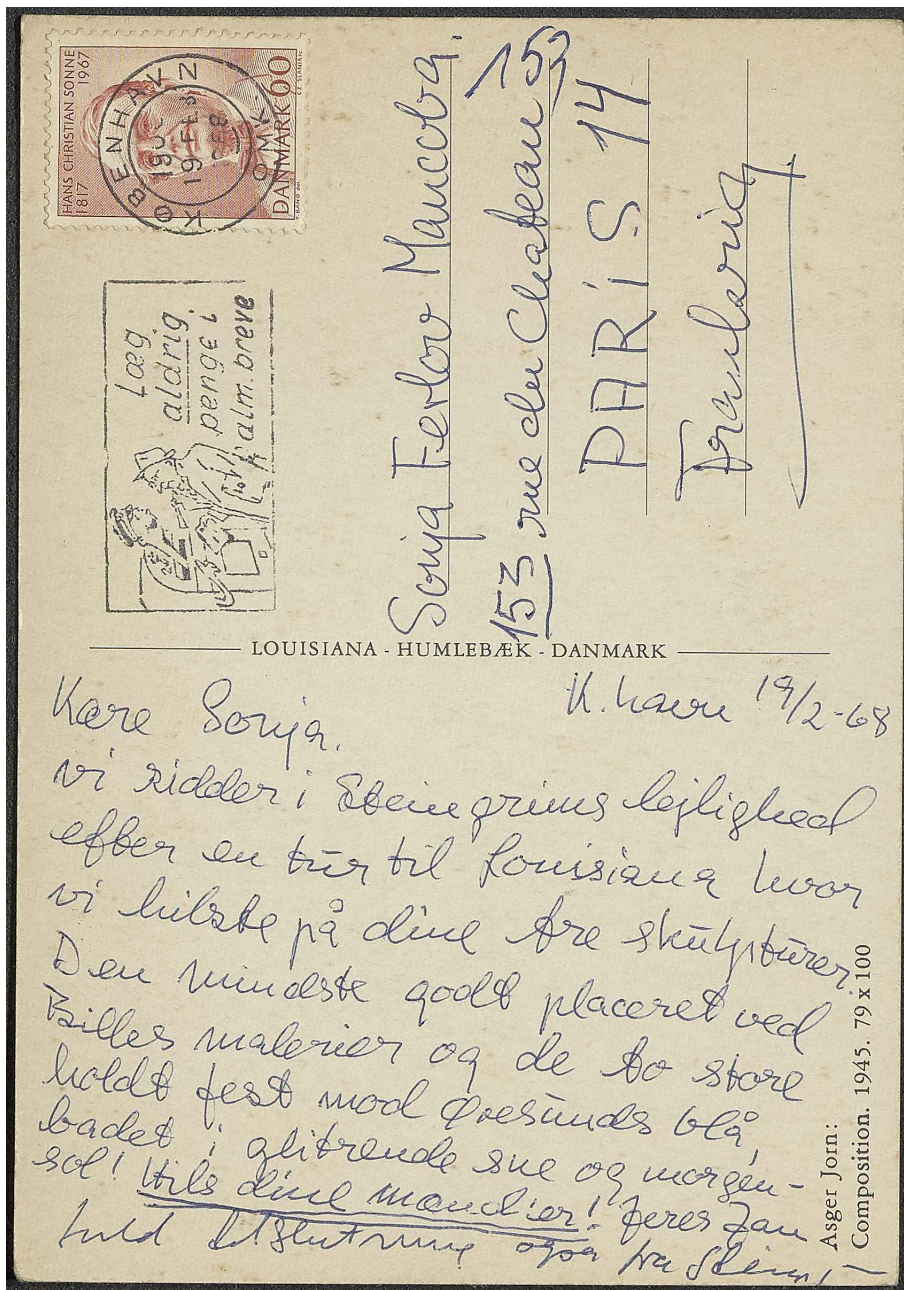 HANS CHRISTIAN SONNE
1817 1967
DANMARK 60
KØBENHAVN
OMK.
19 FEB
Læg
aldrig
penge i
alm. breve
Sonja Ferlov Mancoba.
153 rue du Chateau 153
PARiS 14
LOUISIANA - HUMLEBÆK - DANMARK
K.havn 19/2-68
Kære Sonja.
vi sidder i Steingrims lejlighed
efter en tur til Louisiana hvor
vi hilste på dine tre skulpturer.
Den mindste godt placeret ved
Billes malerier og de to store
holdt fest mod Øresunds blå,
badet i glitrende sne og morgen-
sol! Hils dine mænd
Jan
også fra
Asger Jorn:
Composition. 1945. 79 x 100